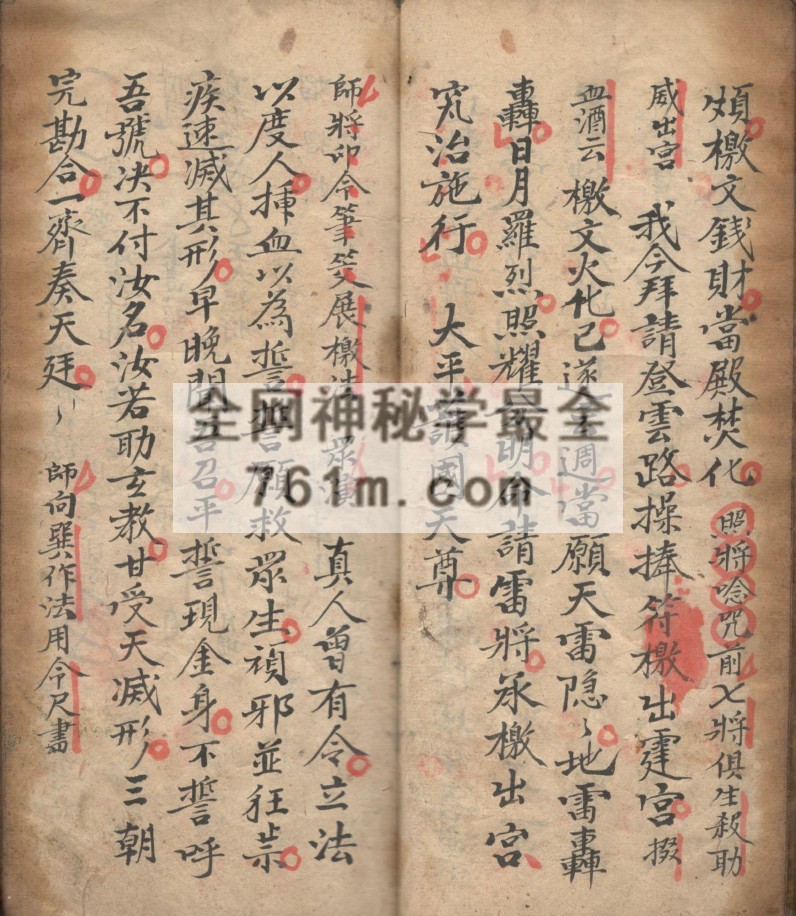 頒檄文錢財當殿焚化 照將唸咒前七將俱生殺助
威出宮 我今拜請登雲路操捧符檄出霆宮掇
血酒云 檄文火化已週當願天雷隐〻地雷轟
轟日月羅烈照耀明今請雷將承檄出宮
究治施行 大平護國天尊
師將印令筆筊展檄法眾 真人曾有令立法
以度人揷血以為誓誓願救眾生禎邪並狂祟
疾速滅其形早晚聞吾召平誓現金身不誓呼
吾號决不付汝名汝若助玄教甘受天滅形三朝
完勘合一齊奏天廷〻 師向巽作法用令尺書
全网神秘学最全
761m.com